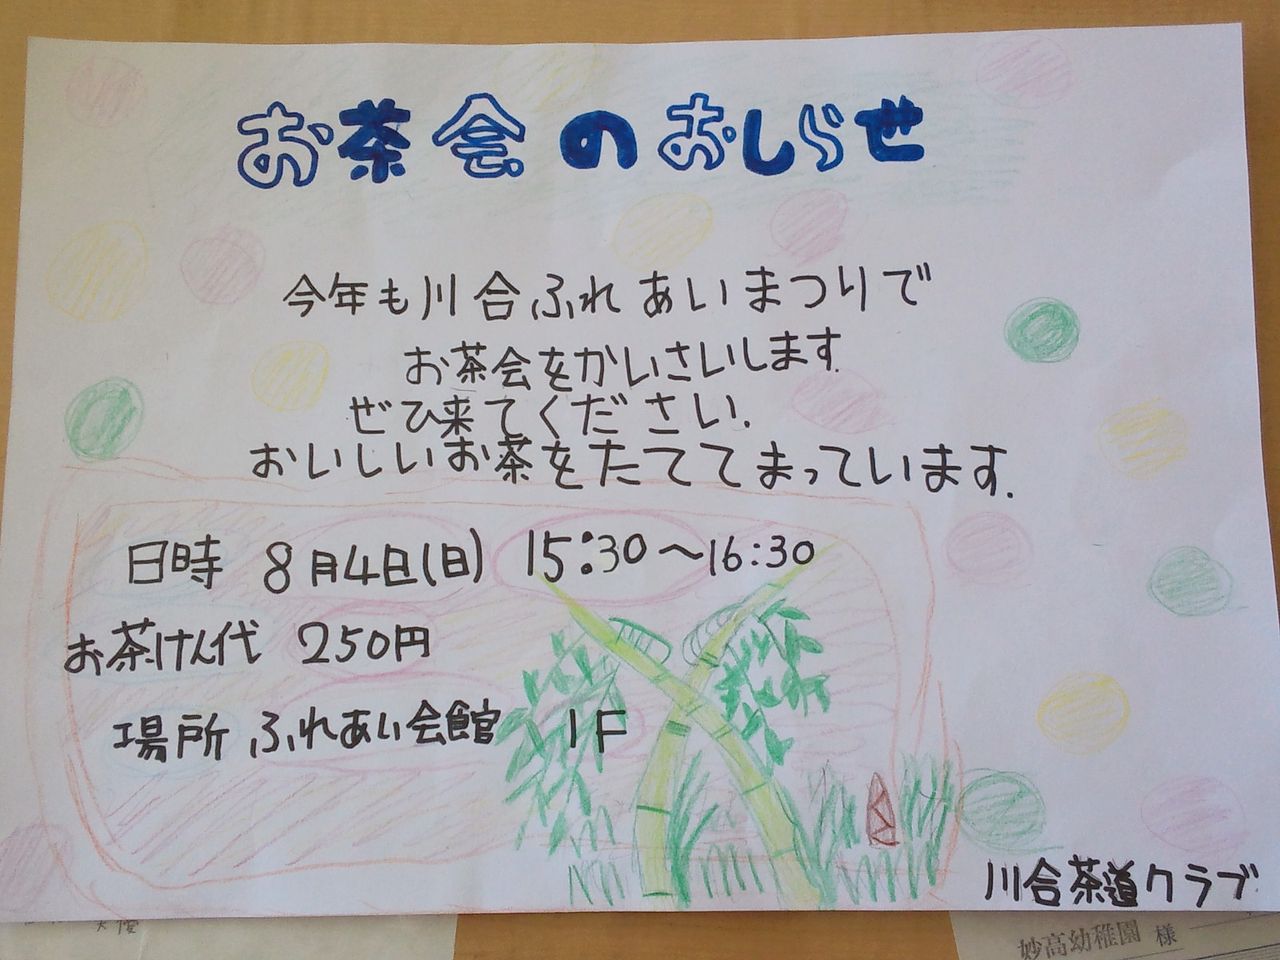 お茶会のおしらせ
今年も川合ふれあいまつりで
お茶会をかいさいします
ぜひ来てください.
おいしいお茶をたててまっています.
日時 8月4日(日) 15:30〜16:30
お茶けん代 250円
場所 ふれあい会館 1F
川合茶道クラブ
妙高幼稚園 様